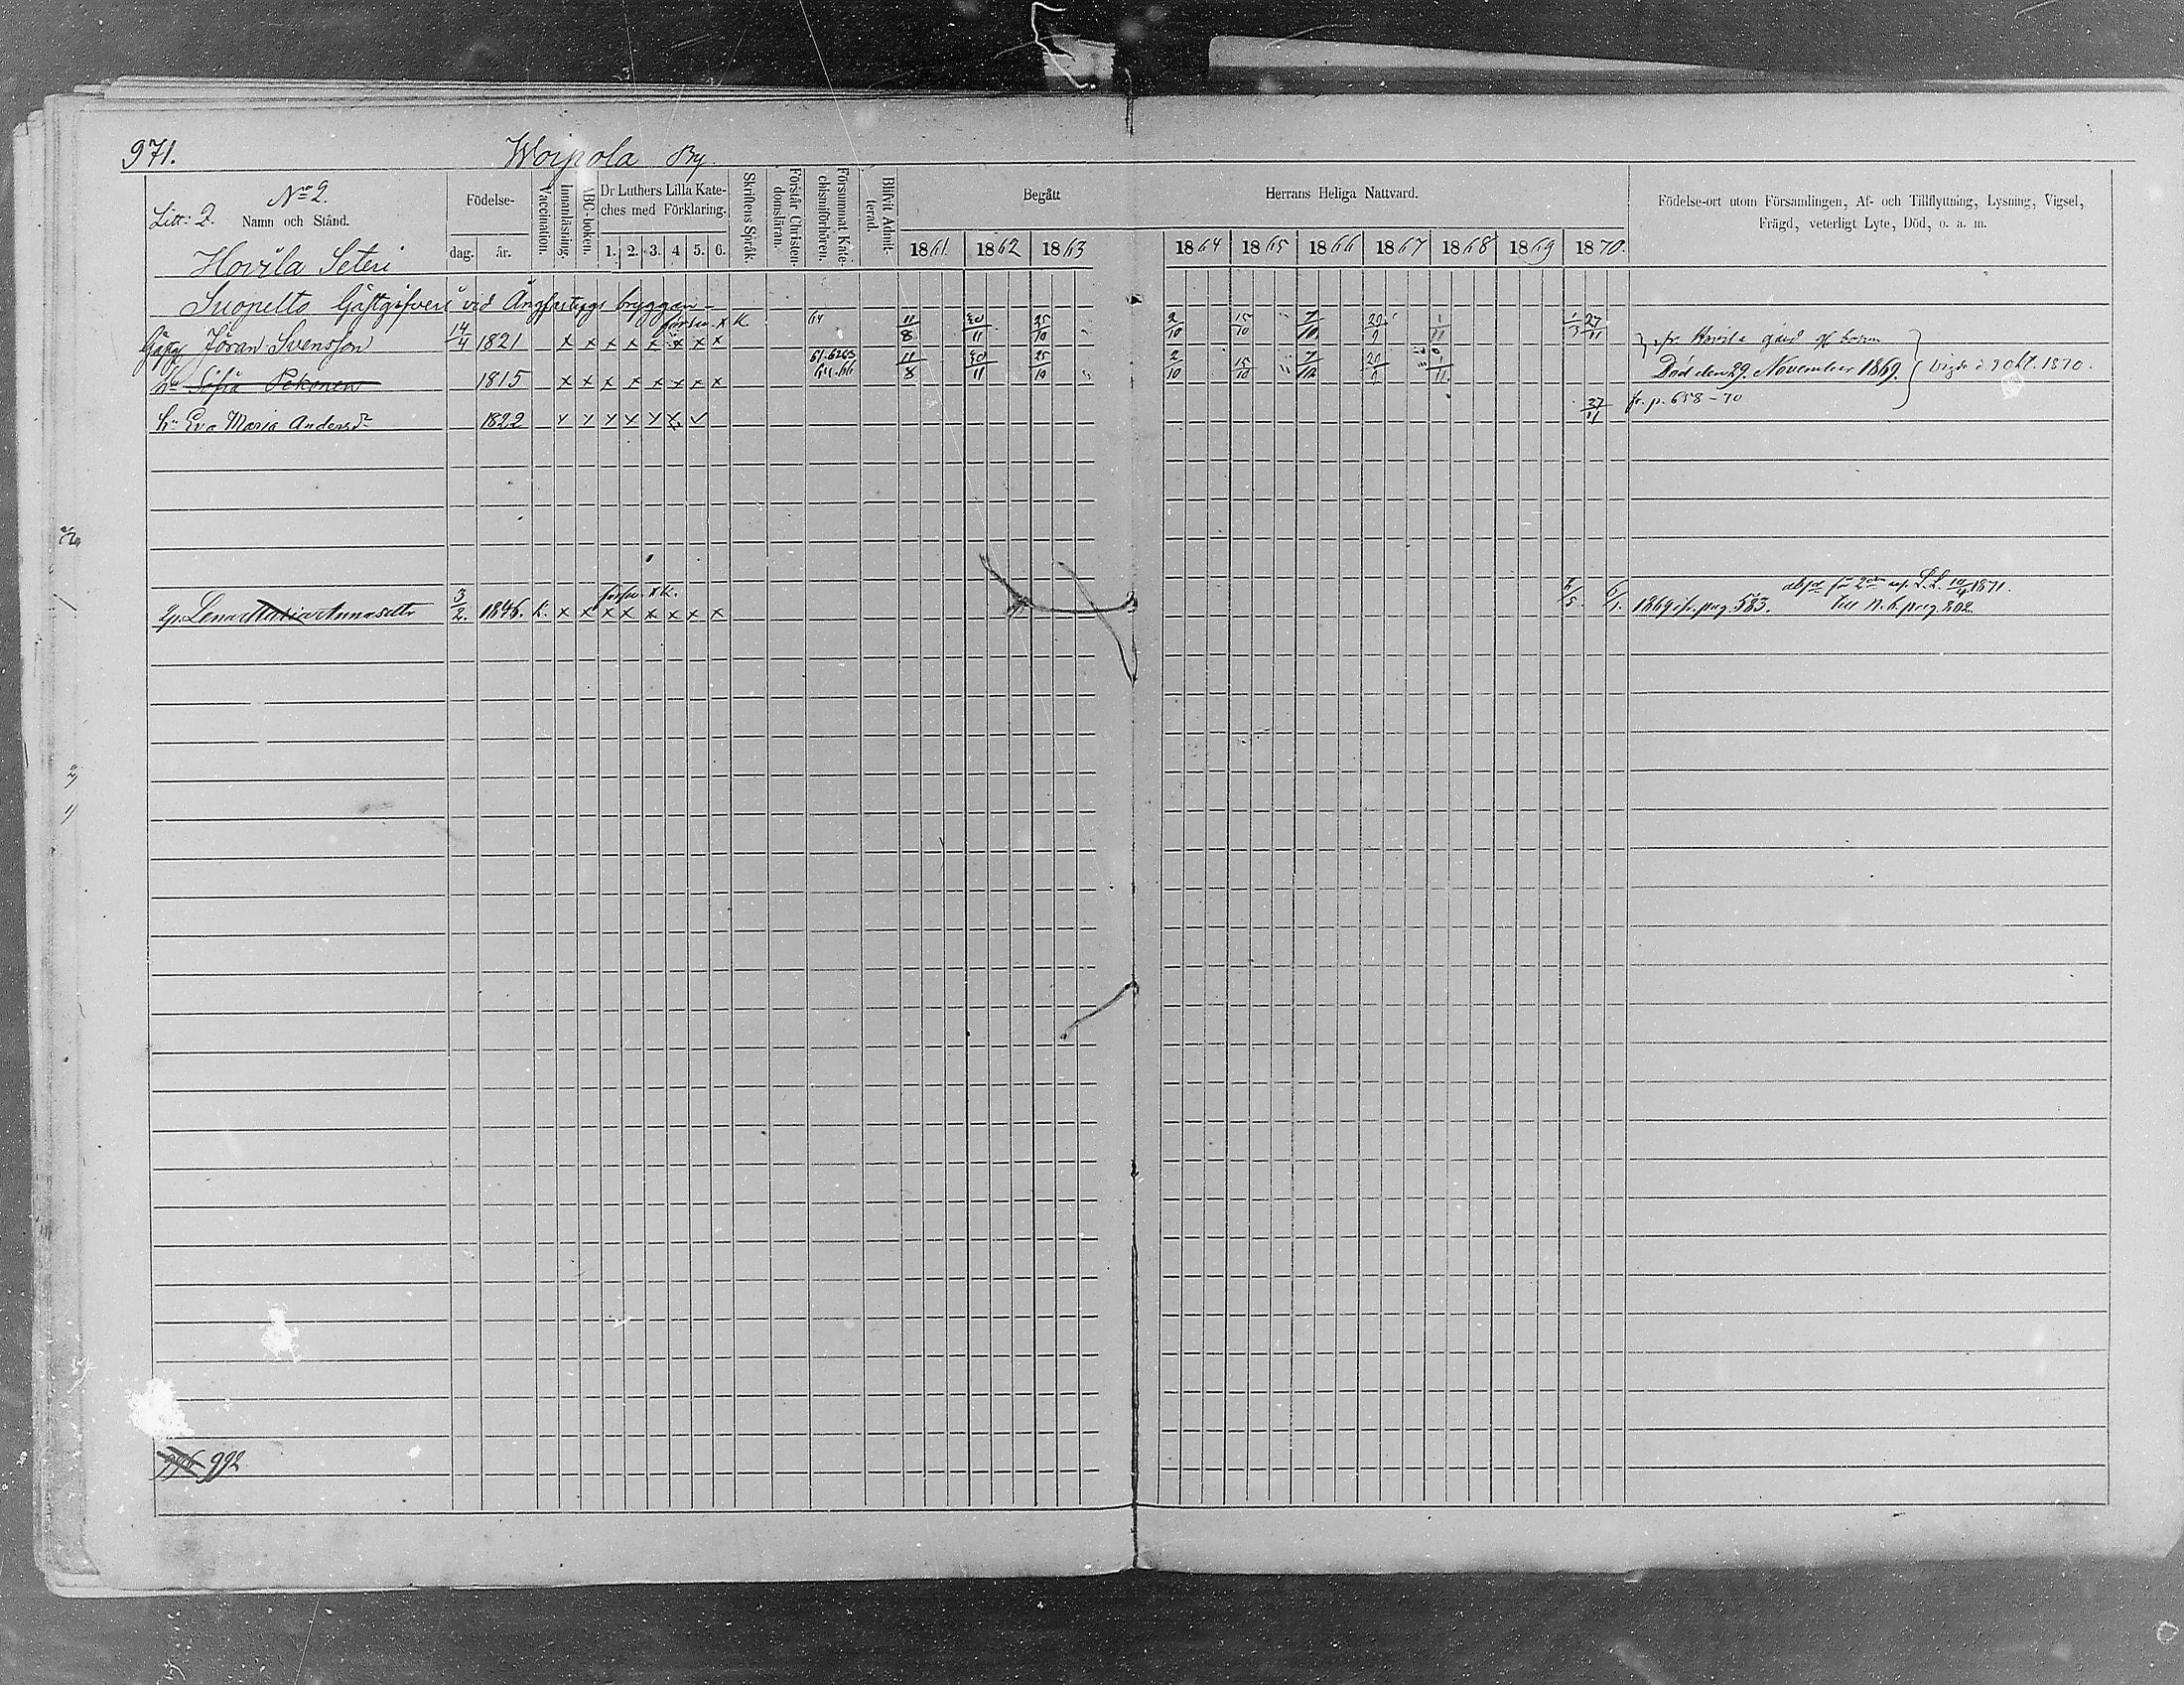 971. Woipola By.
Litt: 2. No 2.
Namn och Stånd.
Födelse-
dag. år.
Vaccination.
Innanläsning.
ABC-boken.
Dr Luthers Lilla Kate-
ches med Förklaring.
1. 2. 3. 4 5. 6.
Skriftens Språk.
Förstår Christen-
domsläran.
Försummat Kate-
chismiförhören.
Blifvit Admit-
terad.
Begått Herrans Heliga Nattvard.
1861. 1862 1863 1864 1865 1866 1867 1868 1869 1870.
Födelse-ort utom Församlingen, Af- och Tillflyttning, Lysning, Vigsel,
Frägd, veterligt Lyte, Död, o. a. m.
Hovila Seteri
Suopelto Gästgifveri vid Ångfartygs bryggan
Gästg. Jöran Svensson 14/4 1821 x x x x x x x x K 64 11/8 20/11 25/10 2/10 15/10 7/10 29/9 1/11 1/3 27/11
Hu Sofia Pekonen 1815 x x x x x x x x 61.6263 11/8 20/11 25/10 2/10 15/10 7/10 29/9 1/11 Död den 29. November 1869. Vigde d. 9 Okt. 1870.
hu Eva Maria Andersdr 1822 27/11 fr. p. 658-70
Lena Maria Annasdtr 3/2. 1846. k. x x x x x x x x 1869 fr. pag. 583. till N.b. pag. 802.
10/4 1871.
992